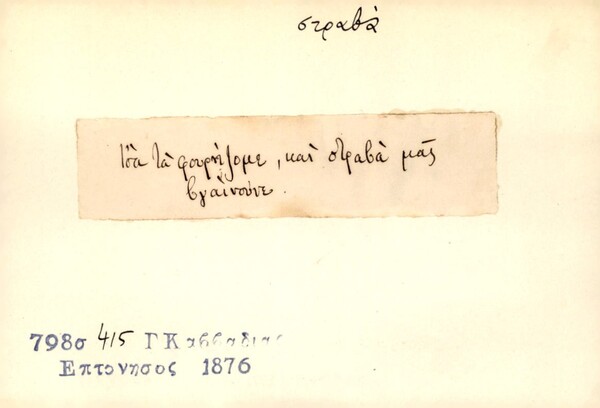 στραβὰ
Ἴσα τὰ φουρνίζομε, καὶ στραβὰ μᾶς
βγαίνουνε.
798σ 415 Γ Καββαδιας
Επτονησος 1876